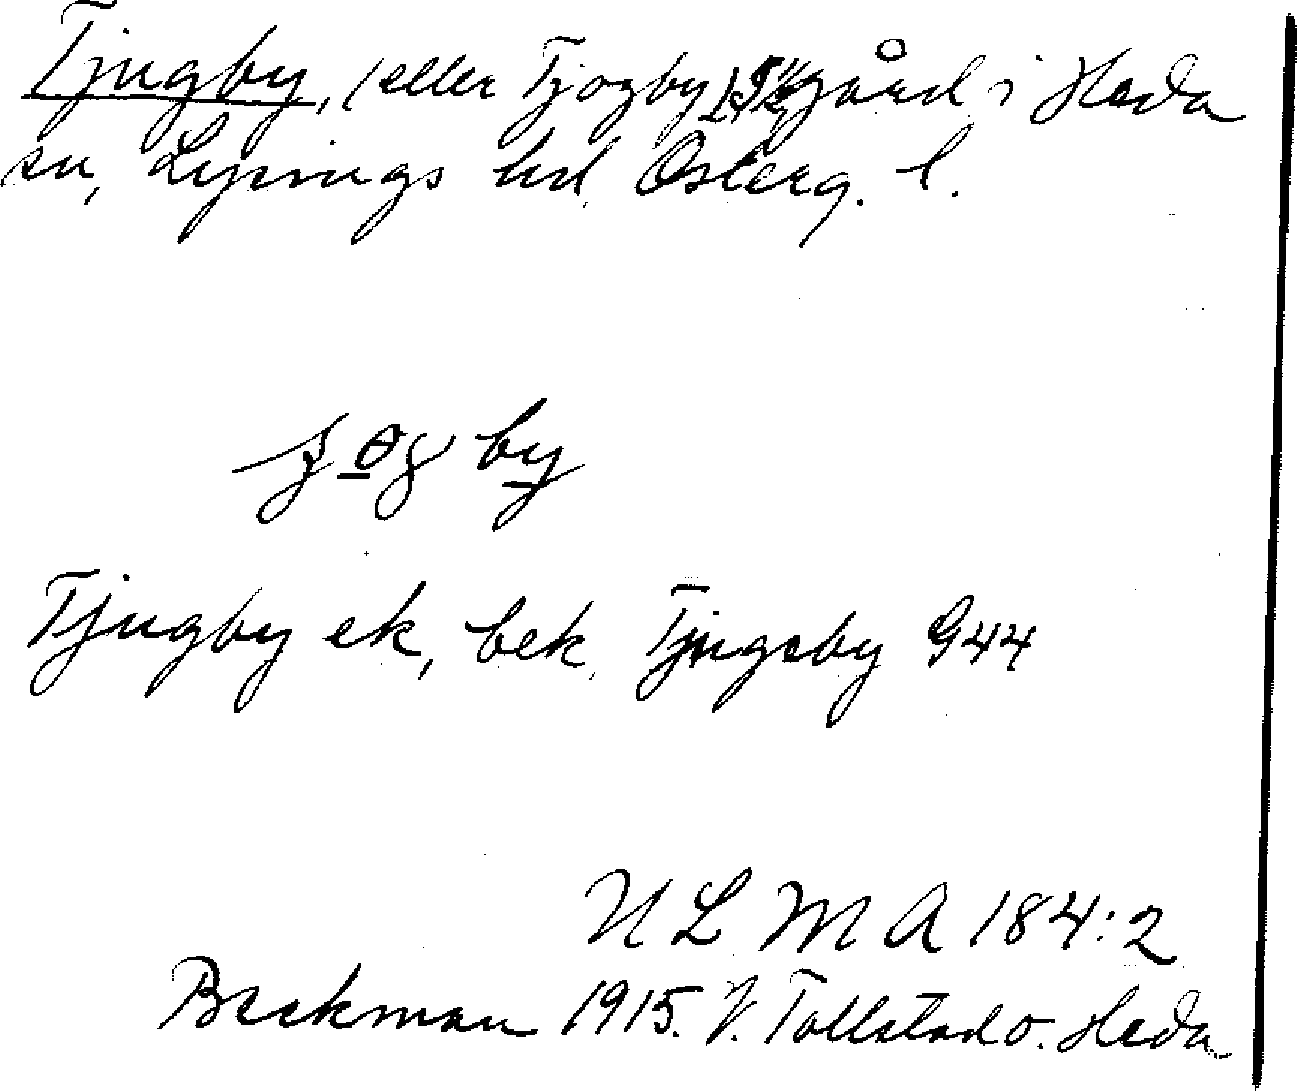 Tjugby, (eller Tjogby) gård i Heda
sn, Lysings hd, Österg. l.
Tjugby ek, bek. Tjugeby G44
ULMA 184:2
Beckman 1915. V. Tollstad o. Heda